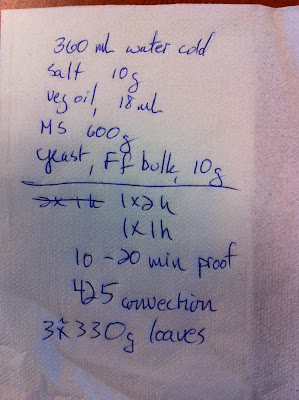 360 ml water cold
salt 10g
veg oil, 18 ml
MS 600g
yeast, Ff bulk, 10g
2x 1h 1x2h
1x1h
10-20 min proof
425 convection
3x330g loaves